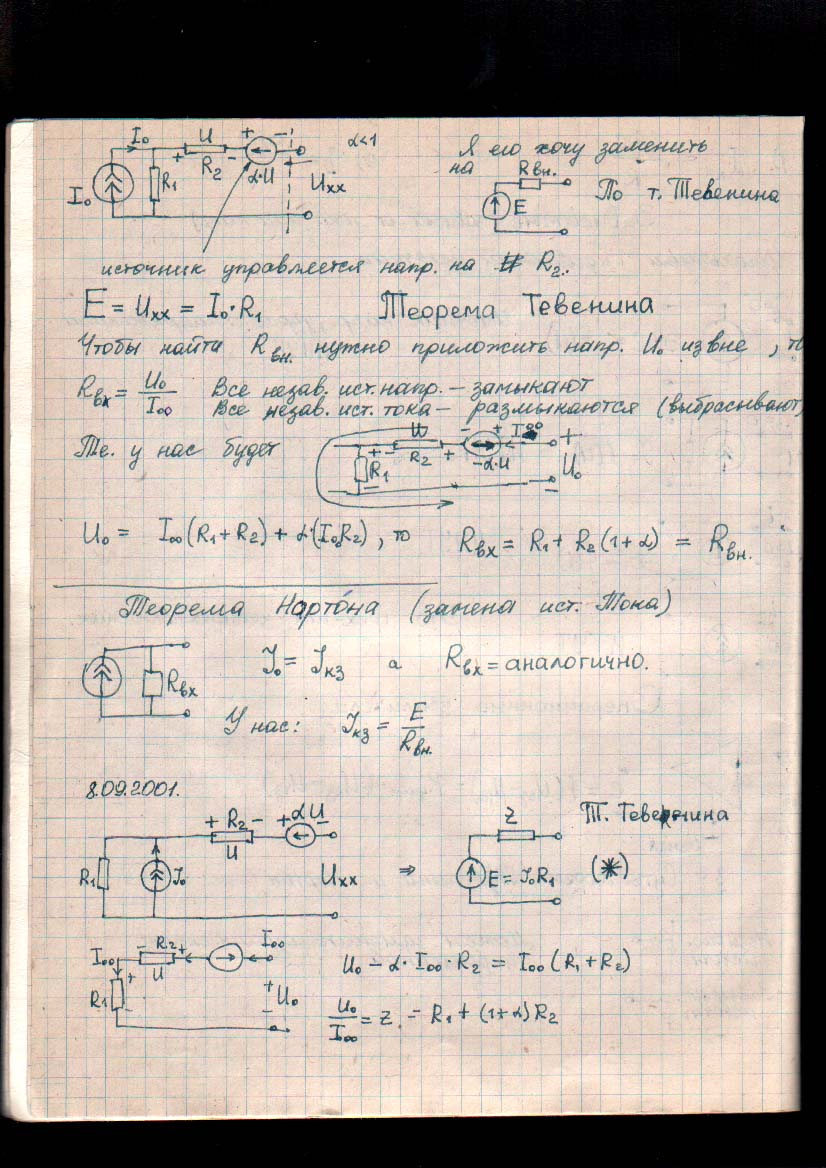 I₀ + U − R₂ + − α·U α<1
I₀ R₁ Uхх
Я его хочу заменить
на Rвн. E По т. Тевенина
источник управляется напр. на R₂.
E = Uхх = I₀·R₁ Теорема Тевенина
Чтобы найти Rвн. нужно приложить напр. U₀ извне, то
Rвх = U₀/I₀₀ Все незав. ист. напр. – замыкают
Все незав. ист. тока – размыкаются (выбрасывают)
Те. у нас будет
R₁ + − − U + R₂ − + −α·U I₀₀ + − U₀
U₀ = I₀₀(R₁+R₂) + α·(I₀₀R₂), то Rвх = R₁ + R₂(1+α) = Rвн.
Теорема Нортóна (замена ист. Тока)
Rвх J₀ = Jкз а Rвх = аналогично.
У нас: Jкз = E/Rвн.
8.09.2001.
R₁ J₀ + R₂ − U + αU − Uхх ⇒ Z E = J₀R₁ Т. Тевенина (*)
I₀₀ − R₂ + U I₀₀ R₁ + − + − U₀
U₀ − α·I₀₀·R₂ = I₀₀(R₁+R₂)
U₀/I₀₀ = Z = R₁ + (1+α)R₂